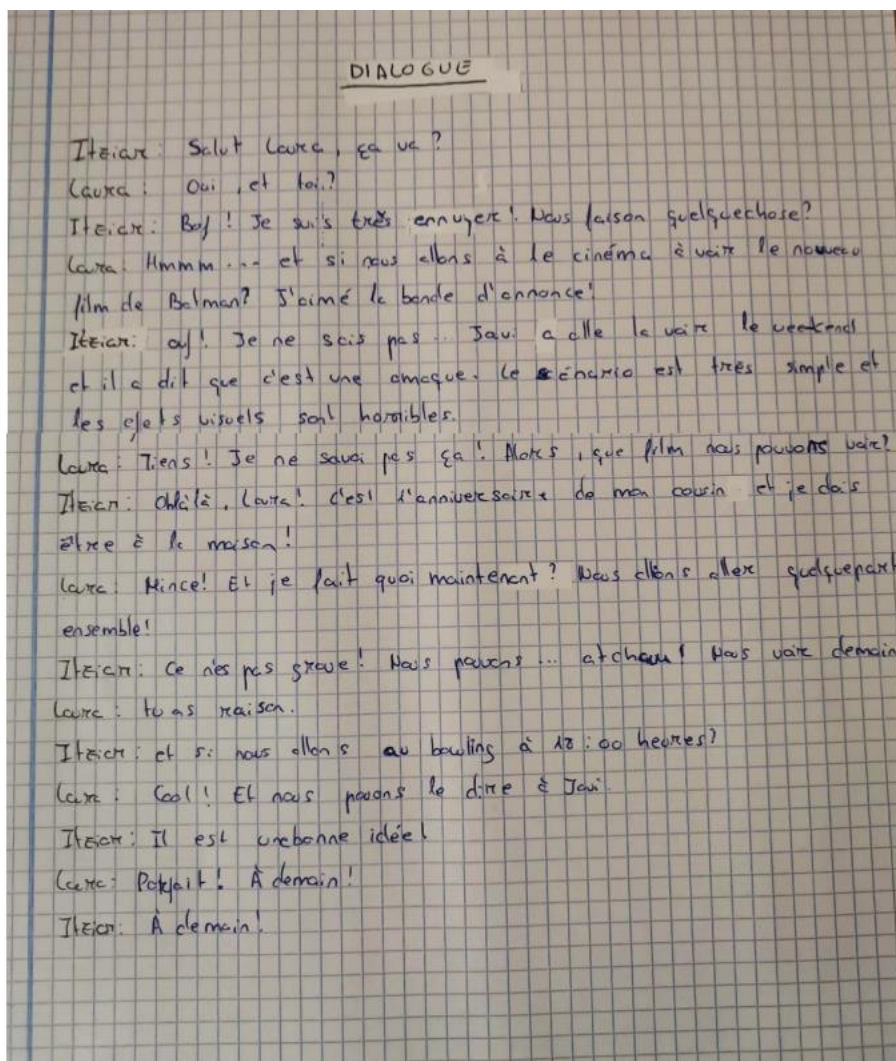 DIALOGUE
Itziar: Salut Laura, ça va?
Laura: Oui, et toi?
Itziar: Bof! Je suis très ennuyer! Nous faison quelquechose?
Laura: Hmmm... et si nous allons à le cinéma à voir le nouveau
film de Batman? J'aimé la bande d'annonce!
Itziar: Je ne sais pas... Javi a alle la voir le weekend
et il a dit que c'est une arnaque. Le scénario est très simple et
les efets visuels sont horribles.
Laura: Tiens! Je ne savai pas ça! Alors, que film nous pouvons voir?
Itziar: Ohlàlà, Laura! c'est l'anniversaire de mon cousin et je dois
être à la maison!
Laura: Mince! Et je fait quoi maintenant? Nous allons aller quelquepart
ensemble!
Itziar: Ce n'es pas grave! Nous pouvons... atchoum! Nous voir demain
Laura: tu as raison.
Itziar: et si nous allons au bowling à 18:00 heores?
Laura: Cool! Et nous pouvons le dire à Javi
Itziar: Il est unebonne idée!
Laura: Parfait! À demain!
Itziar: À demain!